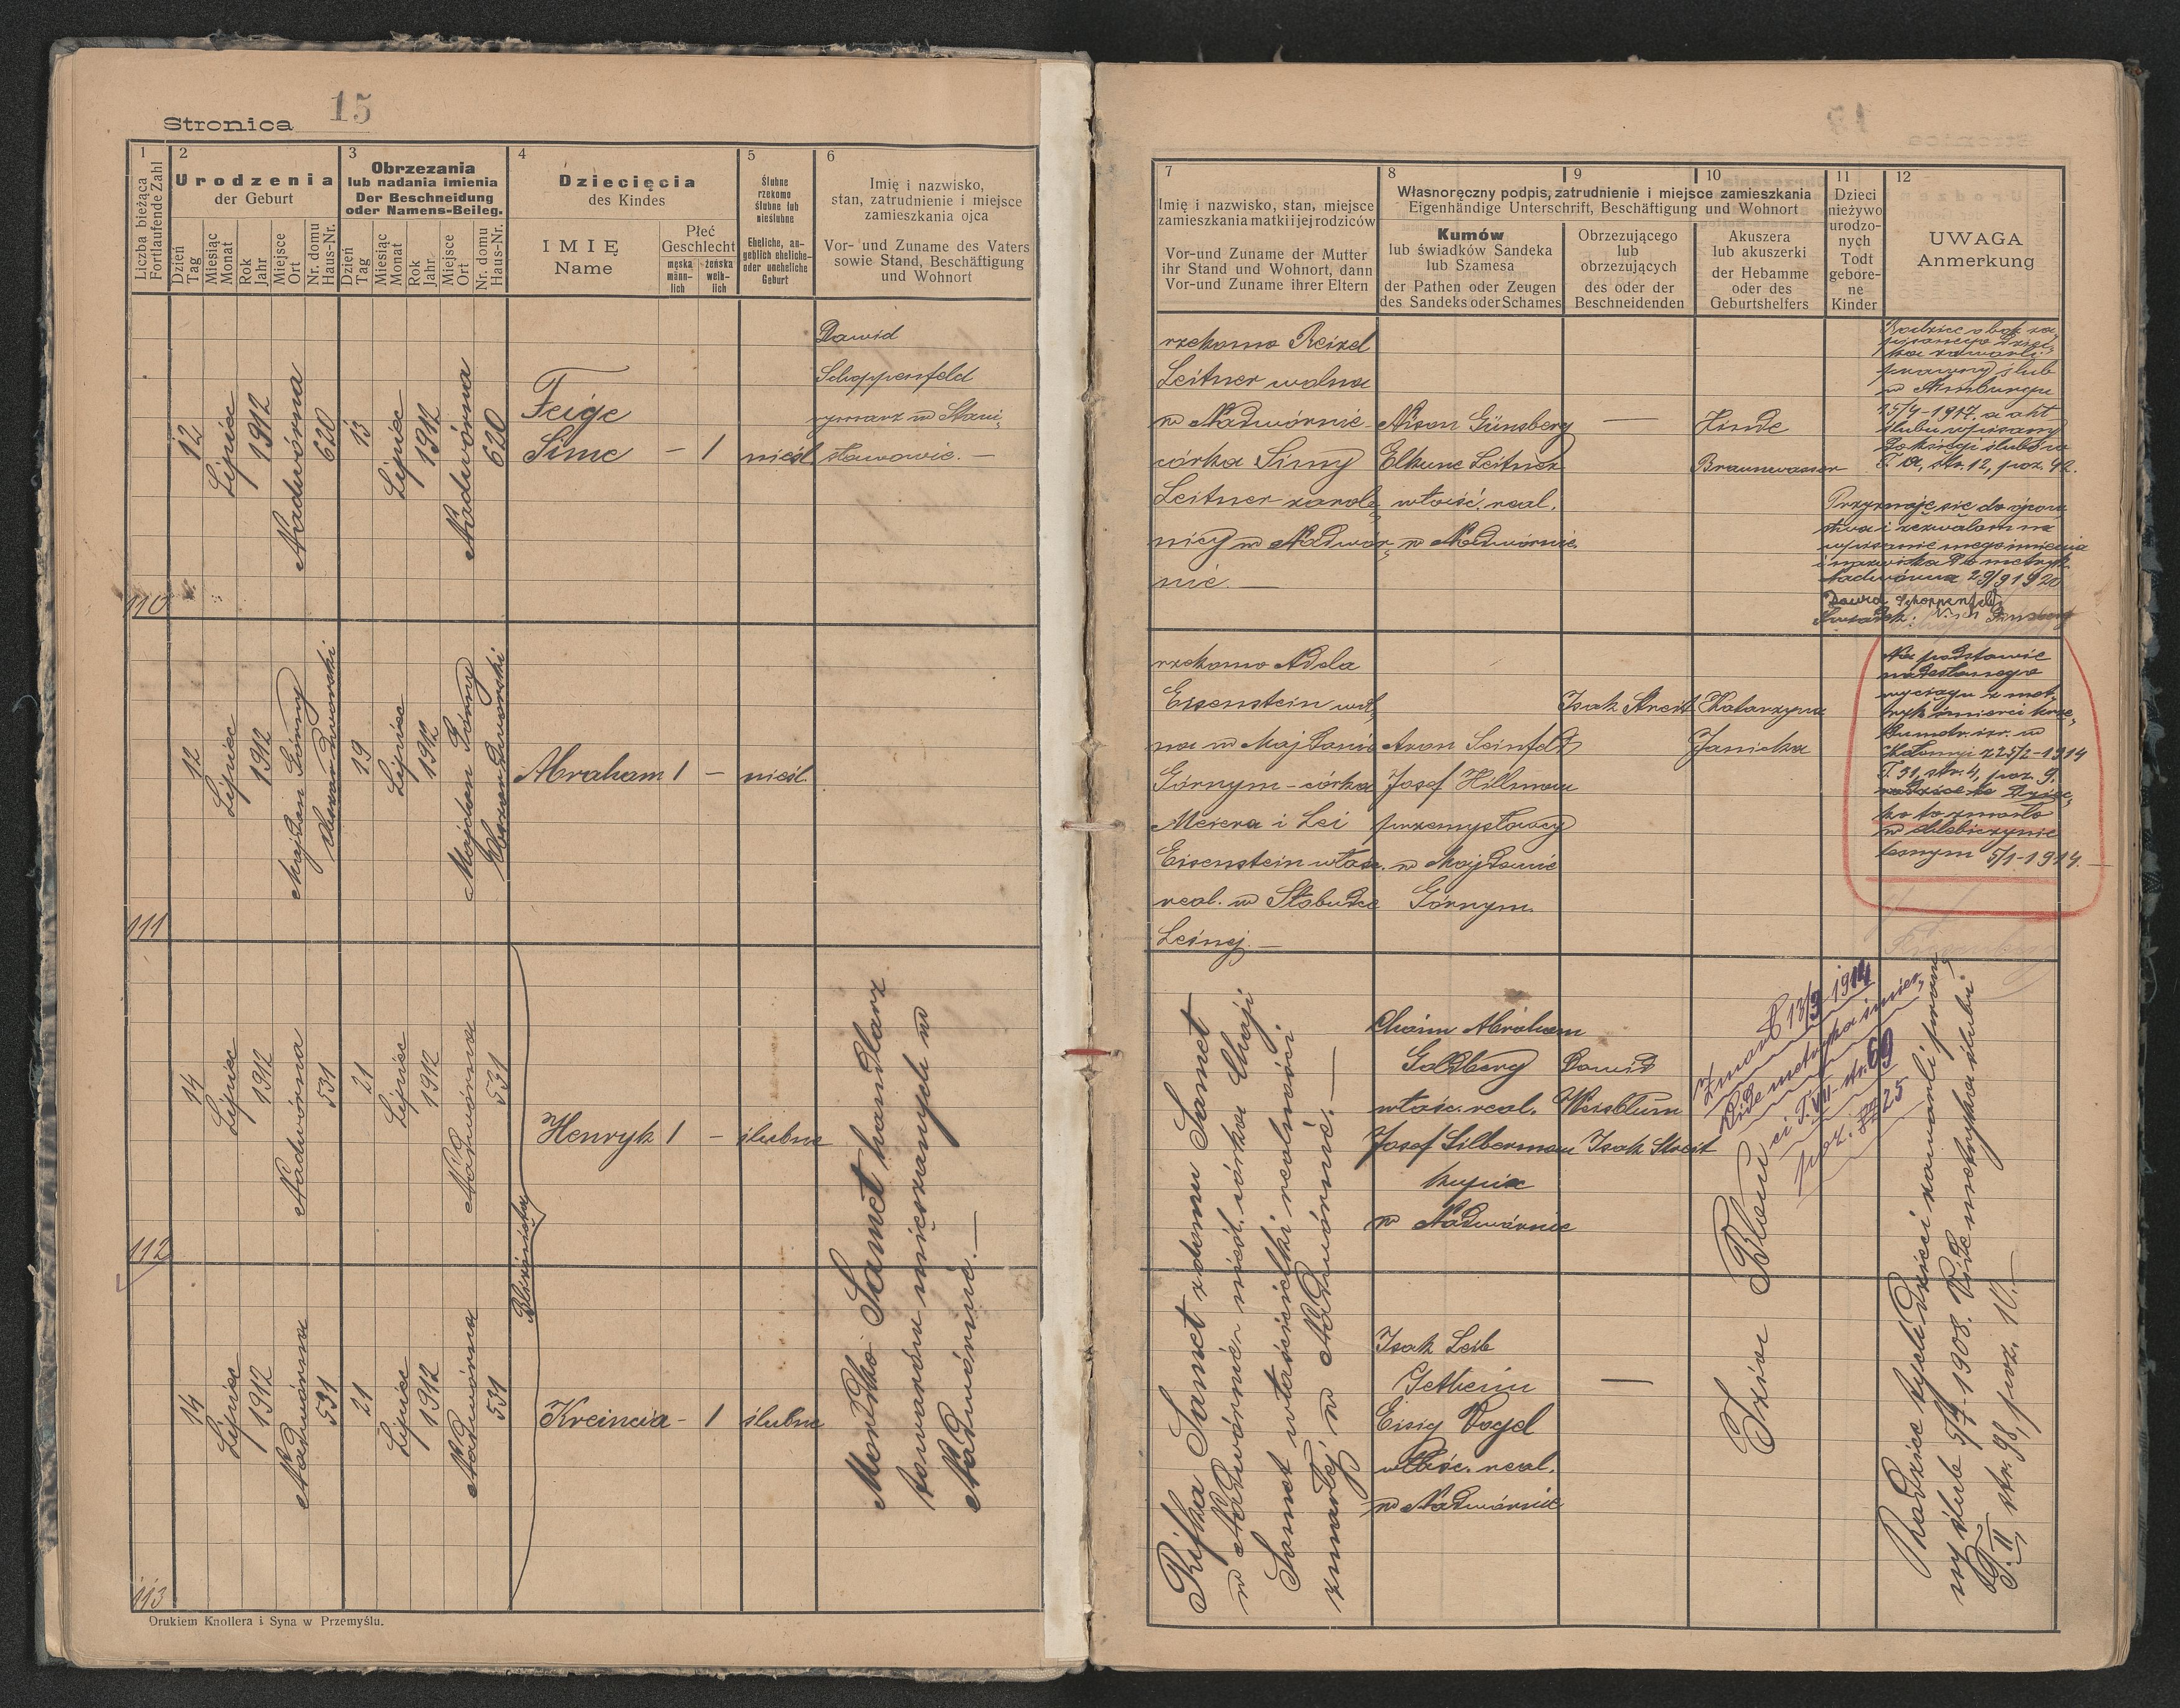 Stronica 15
1
Liczba bieżąca
Fortlaufende Zahl
2
Urodzenia
der Geburt
Dzień
Tag
Miesiąc
Monat
Rok
Jahr
Miejsce
Ort
Nr. domu
Haus-Nr.
3
Obrzezania
lub nadania imienia
Der Beschneidung
oder Namens-Beileg.
Dzień
Tag
Miesiąc
Monat
Rok
Jahr
Miejsce
Ort
Nr. domu
Haus-Nr.
4
Dziecięcia
des Kindes
IMIĘ
Name
Płeć
Geschlecht
męska
männ-
lich
żeńska
weib-
lich
5
Ślubne
rzekomo
ślubne lub
nieślubne
Eheliche, an-
geblich eheliche-
oder uneheliche
Geburt
6
Imię i nazwisko,
stan, zatrudnienie i miejsce
zamieszkania ojca
Vor- und Zuname des Vaters
sowie Stand, Beschäftigung
und Wohnort
110
12
Lipiec
1912
Nadwórna
620
13
Lipiec
1912
Nadwórna
620
Feige
Sime - 1
nieśl.
Dawid
Schoppenfeld
w Stani-
sławowie. -
111
12
Lipiec
1912
Majdan Górny
19
Lipiec
1912
Majdan Górny
Abraham 1 -
nieśl.
112
14
Lipiec
1912
Nadwórna
531
21
Lipiec
1912
Nadwórna
531
Henryk 1 -
ślubne
Bliźnięta
113
14
Lipiec
1912
Nadwórna
531
21
Lipiec
1912
Nadwórna
531
Kreincia - 1
ślubne
Mordko Samet handlarz
towarów mięszanych w
Nadwórnie. -
Drukiem Knollera i Syna w Przemyślu.
7
Imię i nazwisko, stan, miejsce
zamieszkania matki i jej rodziców
Vor-und Zuname der Mutter
ihr Stand und Wohnort, dann
Vor-und Zuname ihrer Eltern
8
9
10
Własnoręczny podpis, zatrudnienie i miejsce zamieszkania
Eigenhändige Unterschrift, Beschäftigung und Wohnort
Kumów
lub świadków Sandeka
lub Szamesa
der Pathen oder Zeugen
des Sandeks oder Schames
Obrzezującego
lub
obrzezujących
des oder der
Beschneidenden
Akuszera
lub akuszerki
der Hebamme
oder des
Geburtshelfers
11
Dzieci
nieżywo
urodzo-
nych
Todt
gebore-
ne
Kinder
12
UWAGA
Anmerkung
rzekomo Reizel
Leitner wolna
w Nadwórnie
córka Simy
Leitner zarob-
nicy w Nadwór-
nie. -
Nison Günsberg
Elkune Leitner
włość. real.
w Nadwórnie
-
Hinde
Braunwasser
Rodzice obok za
pisanego dziec-
ka zawarli
prawny ślub
w Nimburgu
15/4-1917. a akt
ślubu wpisany
do księgi ślubów
str. 12, poz. 42.
Przyznaję się do ojcow
stwa i zezwalam na
wpisanie mego imienia
i nazwiska do metryk.
Nadwórna 29/9 1920
Dawid Schoppenfeld
rzekomo Adela
Eisenstein wol-
na w Majdanie
Górnym - córka
Meiera i Lei
Eisenstein właśc.
real. w Słobudce
Leśnej. -
Aron Seinfeld
Josef Hillman
przemysłowcy
w Majdanie
Górnym
Isak Streit
Katarzyna
Janicka
Na podstawie
nadesłanego
wyciągu z met-
ryk śmierci urzę-
du metr. izr. w
Kołomyi z 25/2-1914
T. 31, str. 4, poz. 9.
ko to zmarło
w Chlebiczynie
lesnym 5/1-1914. -
Rifka Samet z domu Samet
w Nadwórnie nieśl. córka Chaji
Samet właścicielki realności
zmarłej w Nadwórnie. -
Chaim Abraham
Goldberg
właśc. real.
Josef Silberman
kupiec
w Nadwórnie
Dawid
Weisblum
Isak Streit
Zmarł 13/3 1914
Vide metryka śmier-
ci T. VII str. 69
poz. 25
Isak Leib
Getherin
Eisig Vogel
właśc. real.
w Nadwórnie
-
Blau
Rodzice tych dzieci zawarli praw-
ny ślub 5/7-1908. Vide metryka ślubu
T. II str. 98, poz. 10. -